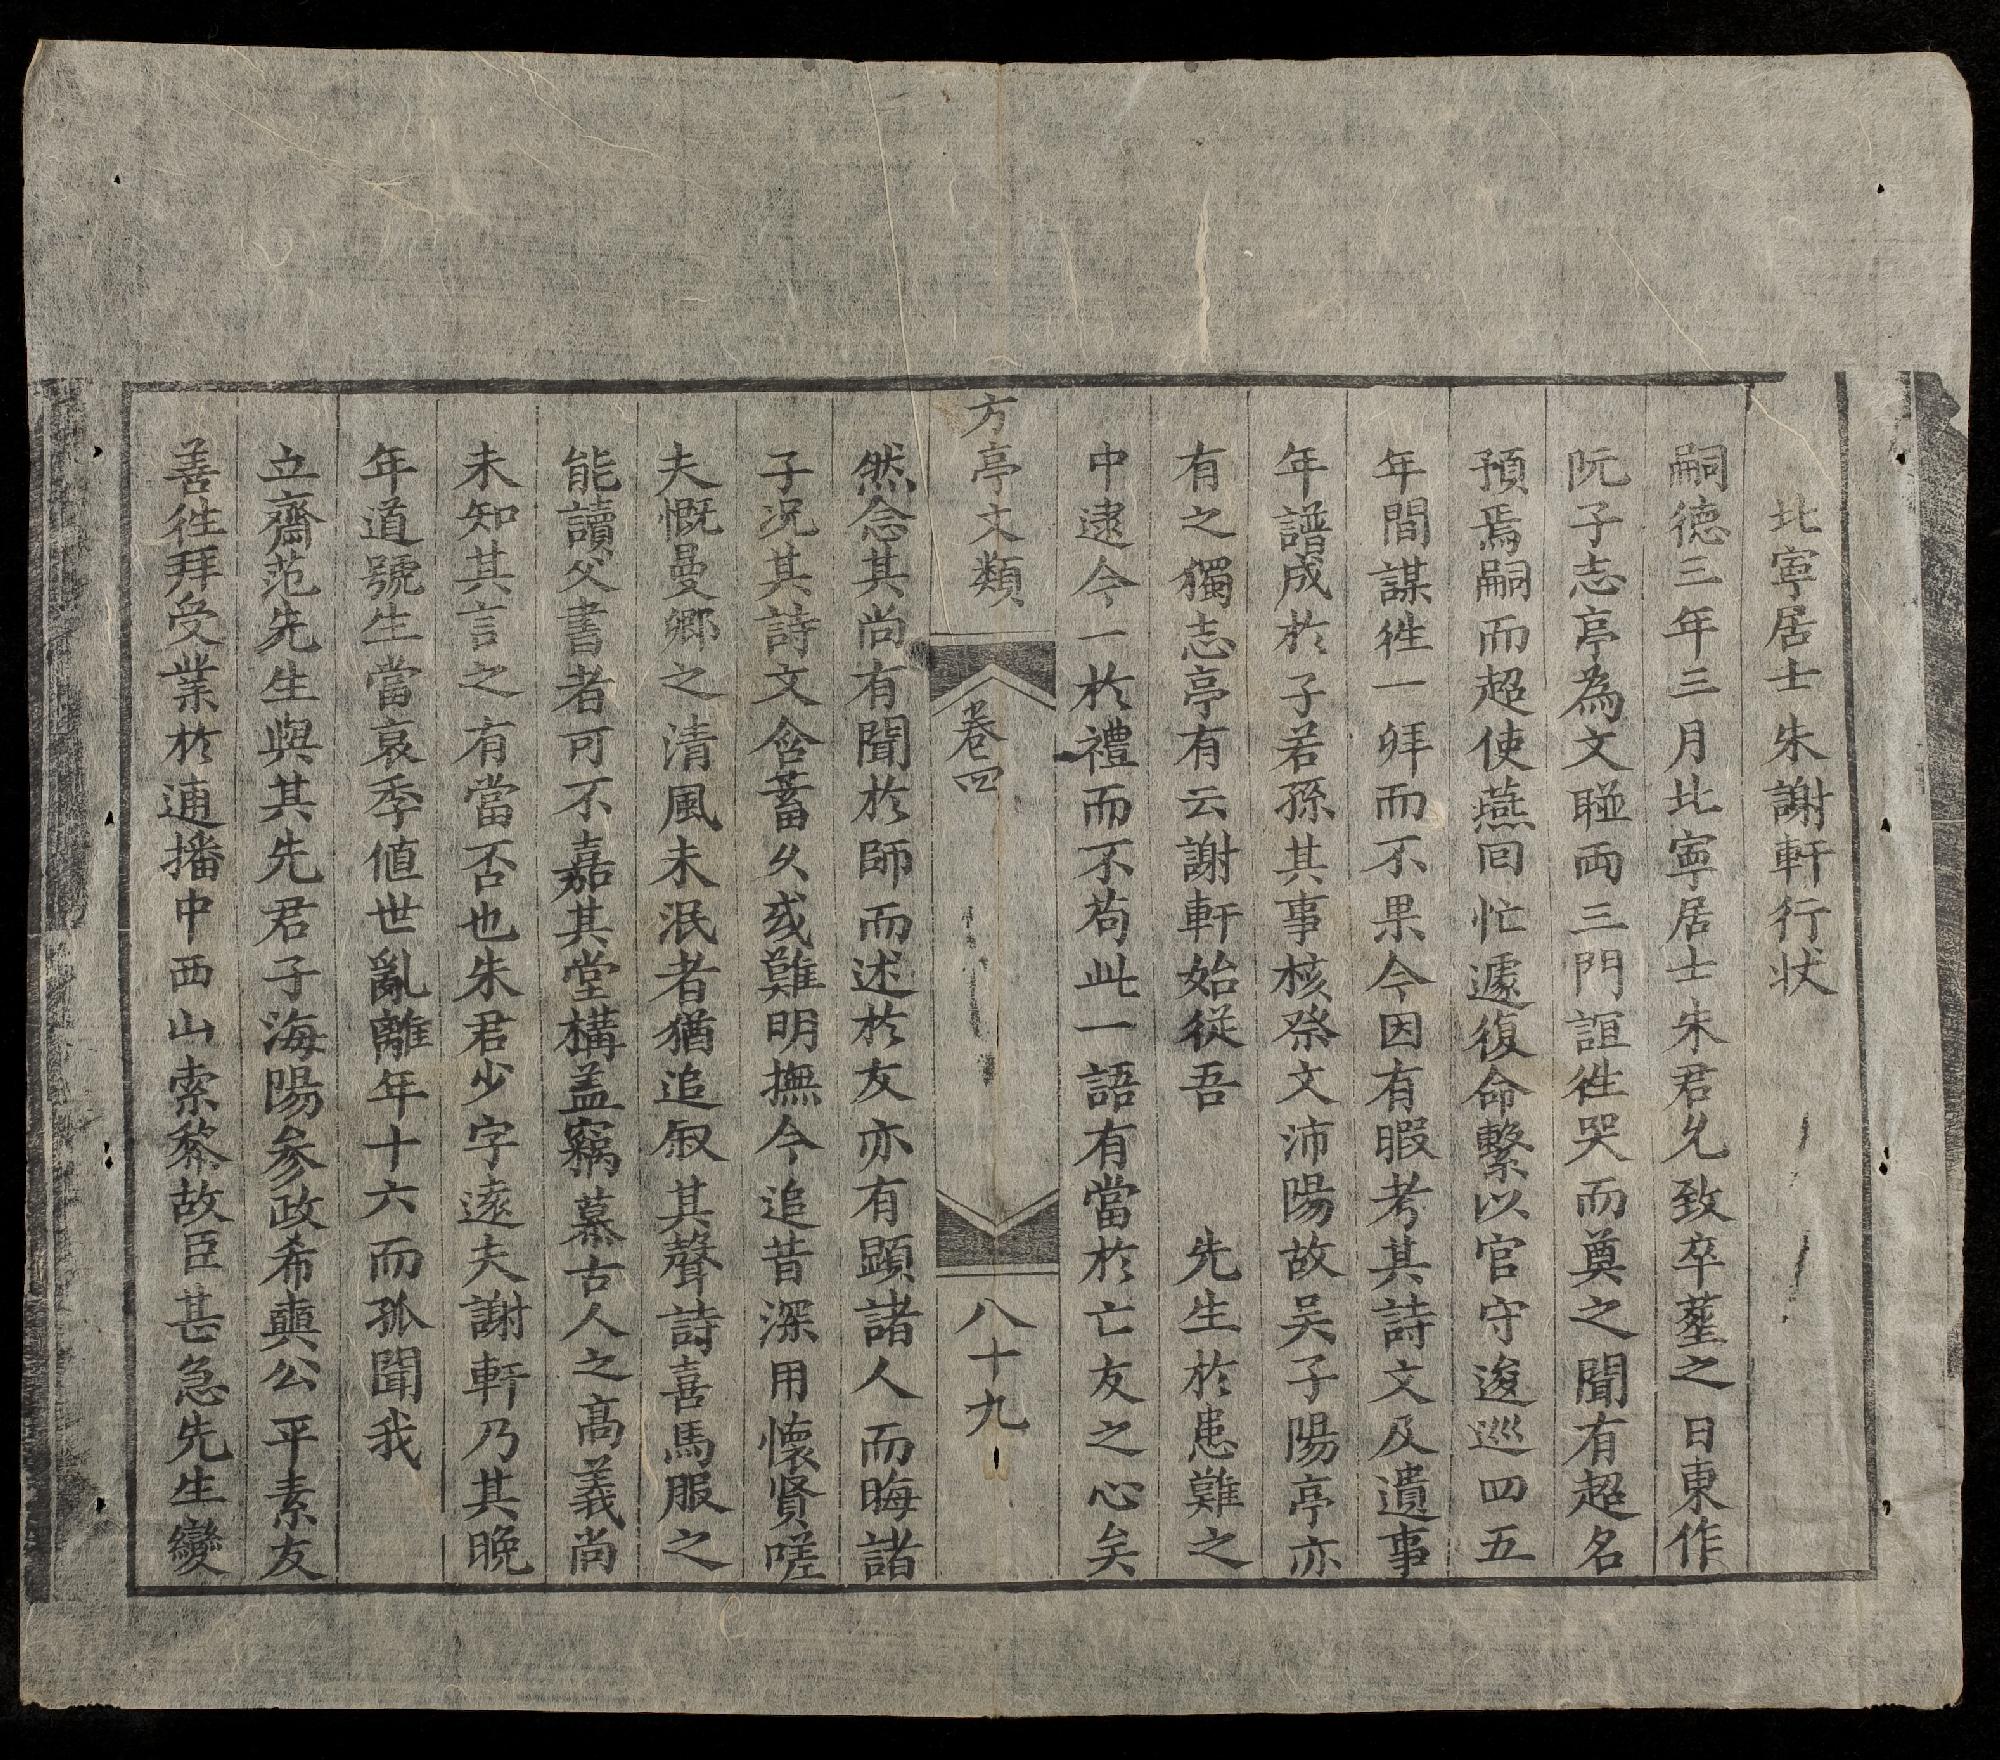 北寧居士朱謝軒行状
嗣德三年三月北寧居士朱君允致卒塟之日東作
阮子志亭為文聮両三門誼徃哭而奠之聞有超名
預焉嗣而超使燕囘忙遽復命繫以官守逡巡四五
年間謀徃一拜而不果今因有暇考其詩文及遺事
年譜成於子若孫其事核祭文沛陽故吴子陽亭亦
有之獨志亭有云謝軒始從吾 先生於患難之
中逮今一於禮而不苟此一語有當於亡友之心矣
方亭文類 卷四 八十九
然念其尚有聞於師而述於友亦有顕諸人而晦諸
子况其詩文含蓄久或難明撫今追昔深用懷賢嗟
夫慨曼郷之清風未泯者猶追叙其聲詩喜馬服之
能讀父書者可不嘉其堂構盖竊慕古人之髙義尚
未知其言之有當否也朱君少字遠夫謝軒乃其晚
年道號生當哀季値世亂離年十六而孤聞我
立齋范先生與其先君子海陽参政希奭公平素友
善徃拜受業於逋播中西山索黎故臣甚急先生變